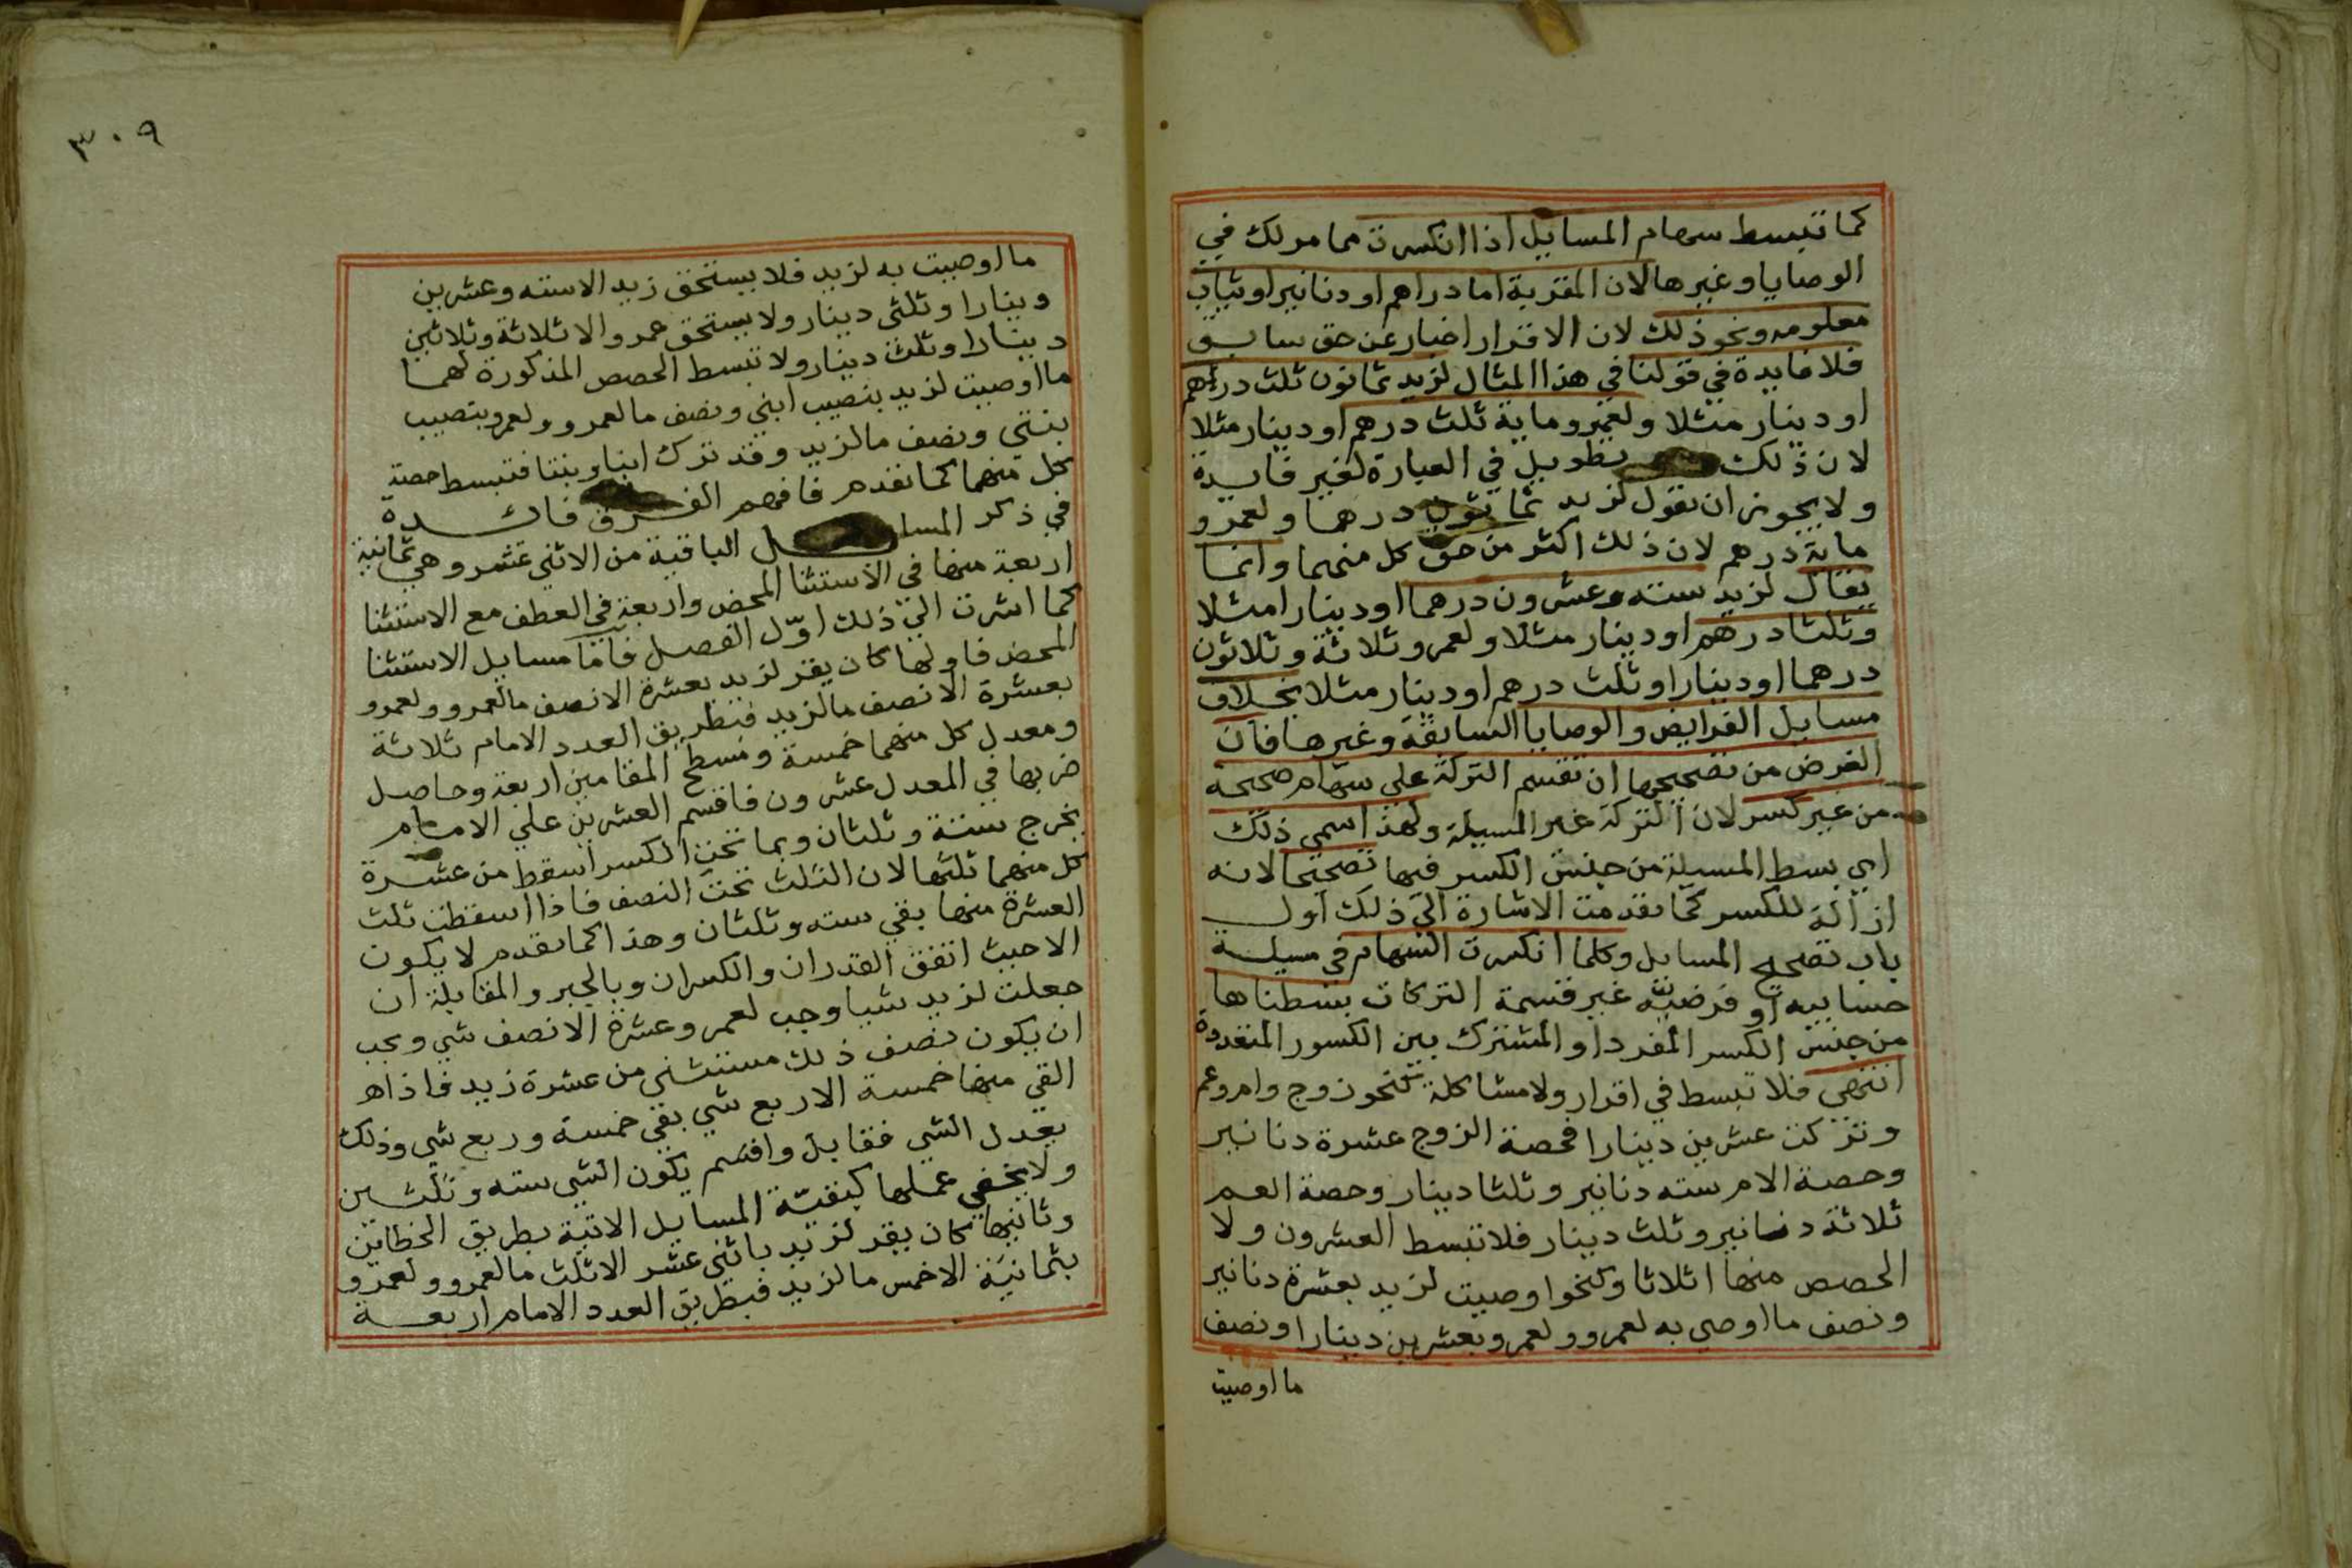 كما تبسط سهام المسايل اذا انكسرت مما مر لك في
الوصايا وغيرها لان المقر به اما دراهم او دنانير او ثياب
معلومه ونحو ذلك لان الاقرار اخبار عن حق سابق
فلا فايدة في قولنا في هذا المثال لزيد ثمانون ثلث درهم
او دينار مثلا ولعمرو ماية ثلث درهم او دينار مثلا
لان ذلك تطويل في العبارة لغير فايدة
ولا يجوز ان نقول لزيد ثمانون درهما ولعمرو
ماية درهم لان ذلك اكثر من حق كل منهما وانما
يقال لزيد سته وعشرون درهما او دينارا مثلا
وثلثا درهم او دينار مثلا ولعمرو ثلاثة وثلاثون
درهما او دينارا وثلث درهم او دينار مثلا بخلاف
مسايل الفرايض والوصايا السابقة وغيرها فان
الغرض من تصحيحها ان تقسم التركة على سهام صحيحة
من غير كسر لان التركة غير المسيلة ولهذا سمى ذلك
اي بسط المسيلة من جنس الكسر فيها تصحيحا لانه
ازالة للكسر كما تقدمت الاشارة الى ذلك اول
باب تصحيح المسايل وكلما انكسرت السهام في مسيلة
حسابيه او فرضيه غير قسمة التركات بسطناها
من جنس الكسر المفرد او المشترك بين الكسور المتعددة
انتهى فلا تبسط في اقرار ولا مشاكلة كنحو زوج وام وعم
وتركت عشرين دينارا فحصة الزوج عشرة دنانير
وحصة الام سته دنانير وثلثا دينار وحصة العم
ثلاثة دنانير وثلث دينار فلا تبسط العشرون ولا
الحصص منها اثلاثا وكنحو اوصيت لزيد بعشرة دنانير
ونصف ما اوصى به لعمرو ولعمرو بعشرين دينارا ونصف
ما اوصيت
٣٠٩
ما اوصيت به لزيد فلا يستحق زيد الا سته وعشرين
دينارا وثلثي دينار ولا يستحق عمرو الا ثلاثة وثلاثين
دينارا وثلث دينار ولا تبسط الحصص المذكورة لهما
ما اوصيت لزيد بنصيب ابني ونصف ما لعمرو ولعمرو بنصيب
بنتي ونصف ما لزيد وقد ترك ابنا وبنتا فتبسط حصة
كل منهما كما تقدم فافهم الفرق فائدة
في ذكر المسايل الباقية من الاثني عشر وهي ثمانية
اربعة منها في الاستثنا المحض واربعة في العطف مع الاستثنا
كما اشرت الى ذلك اوّل الفصل فاما مسايل الاستثنا
المحض فاولها كان يقر لزيد بعشرة الا نصف ما لعمرو ولعمرو
بعشرة الا نصف ما لزيد فبطريق العدد الامام ثلاثة
ومعدل كل منهما خمسة ومسطح المقامين اربعة وحاصل
ضربها في المعدل عشرون فاقسم العشرين على الامام
يخرج ستة وثلثان وبما تحت الكسر اسقط من عشرة
كل منهما ثلثها لان الثلث تحت النصف فاذا اسقطت ثلث
العشرة منها بقي سته وثلثان وهذا كما تقدم لا يكون
الا حيث اتفق القدران والكسران وبالجبر والمقابلة ان
جعلت لزيد شيا وجب لعمرو عشرة الا نصف شي ويجب
ان يكون نصف ذلك مستثنى من عشرة زيد فاذا هـ
القي منها خمسة الا ربع شي بقي خمسة وربع شي وذلك
يعدل الشي فقابل واقسم يكون الشي سته وثلثين
ولا يخفى عملها كبقيّة المسايل الاتية بطريق الخطاين
وثانيها كان يقر لزيد باثني عشر الا ثلث ما لعمرو ولعمرو
بثمانية الا خمس ما لزيد فبطريق العدد الامام اربعة